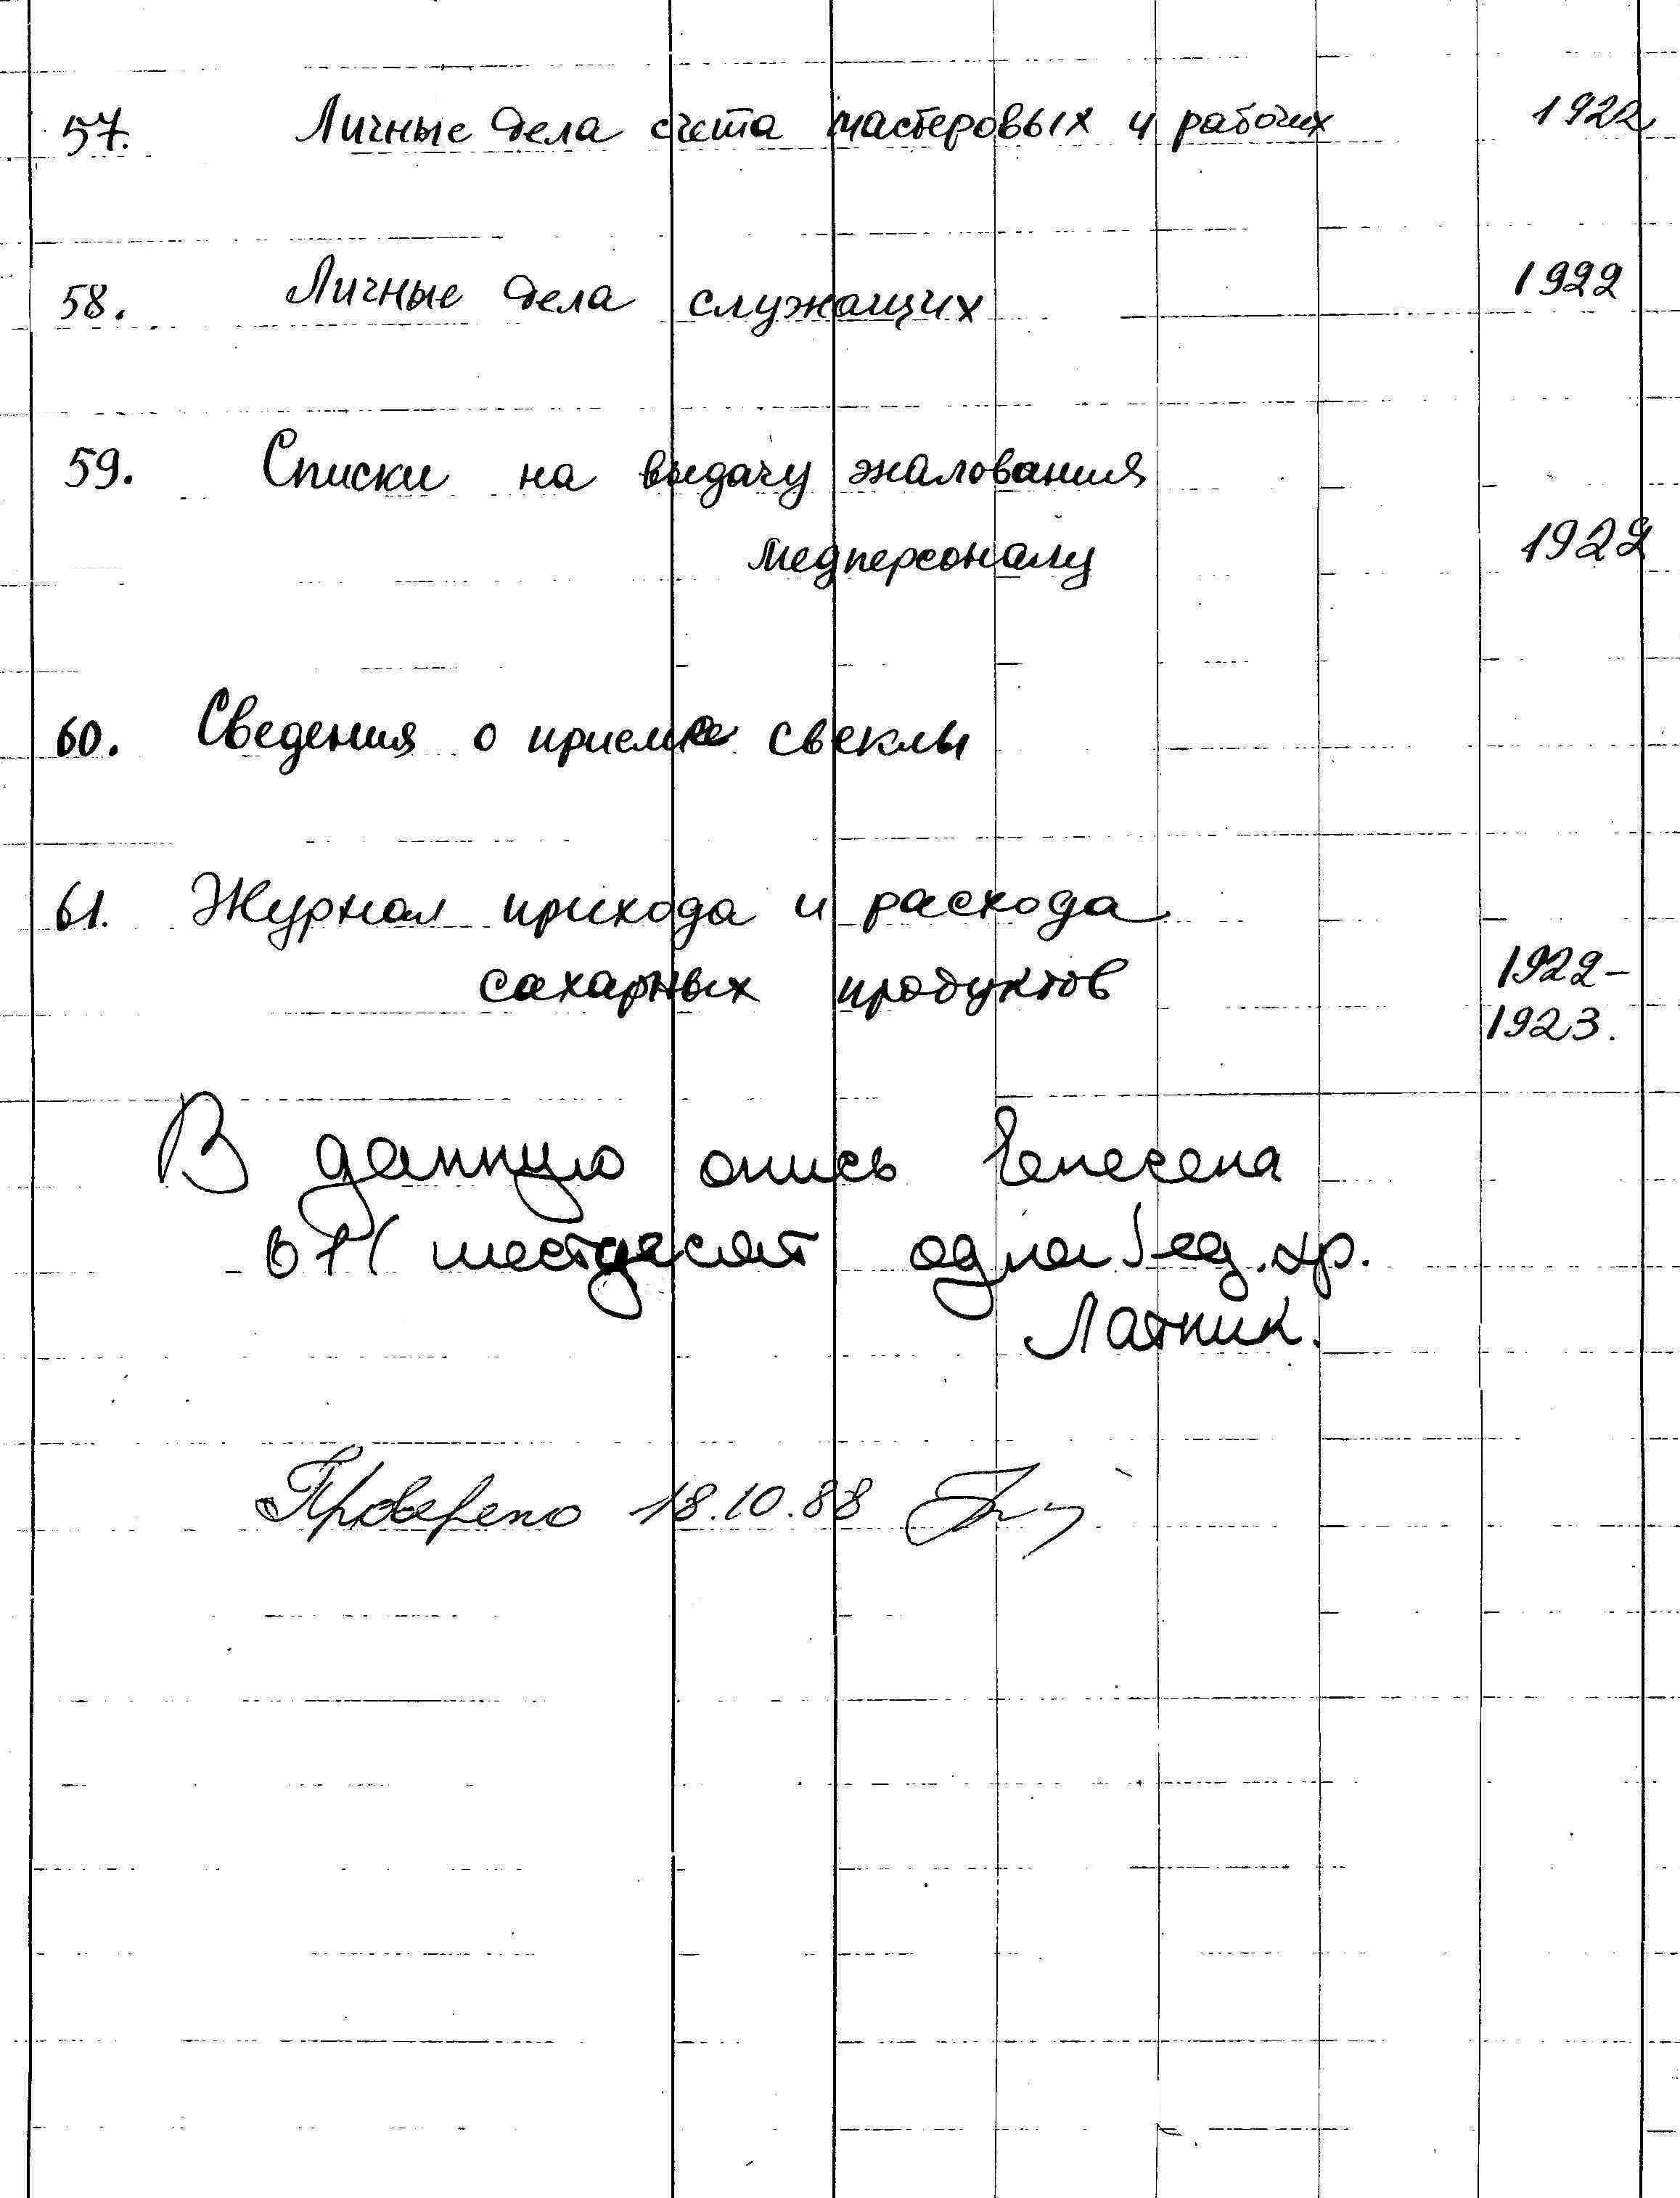 57. Личные дела счета мастеровых и рабочих 1922
58. Личные дела служащих 1922
59. Списки на выдачу жалования
медперсоналу 1922
60. Сведения о приемке свеклы
61. Журнал прихода и расхода
сахарных продуктов 1922-
1923.
В данную опись внесена
61 (шестдесят одна) ед. хр.
Латник.
Проверено 18.10.88